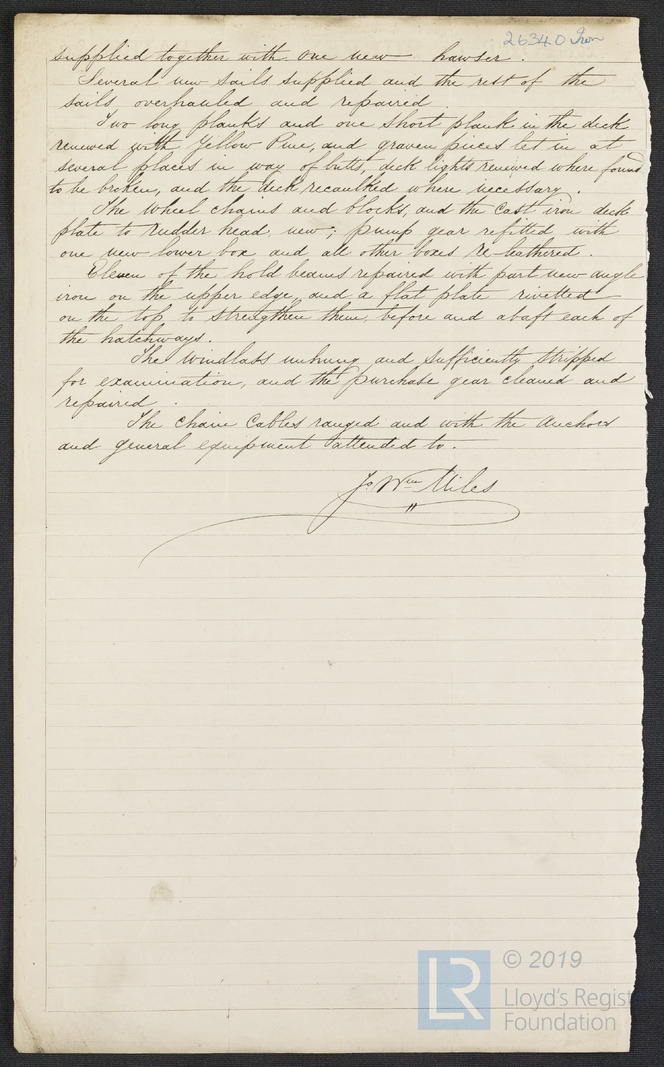 26340 Iron
supplied together with one new hawser.
Several new sails supplied and the rest of the
sails overhauled and repaired.
Two long planks and one short plank in the deck
renewed with Yellow Pine, and graven pieces let in at
several places in way of butts, deck lights renewed where found
to be broken, and the deck recaulked where necessary.
The wheel chains and blocks, and the cast iron deck
plate to rudder head new; pump gear refitted with
one new lower box and all other boxes re-leathered.
Eleven of the hold beams repaired with part new angle
iron on the upper edge, and a flat plate rivetted
on the top to strengthen them, before and abaft each of
the hatchways.
The windlass unhung and sufficiently stripped
for examination, and the purchase gear cleaned and
repaired.
The chain cables ranged and with the anchors
and general equipment attended to.
Jo Wm Miles
LR
© 2019
Lloyd'sRegist
Foundation